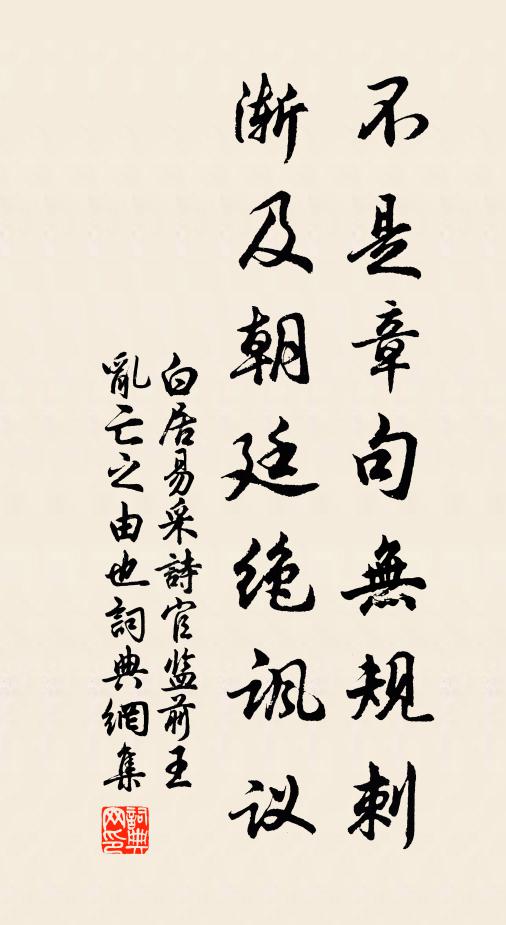 不是章句無規刺
漸及朝廷绝諷议
白居易采詩官监前王
亂亡之由也詞典網集
詞典网印